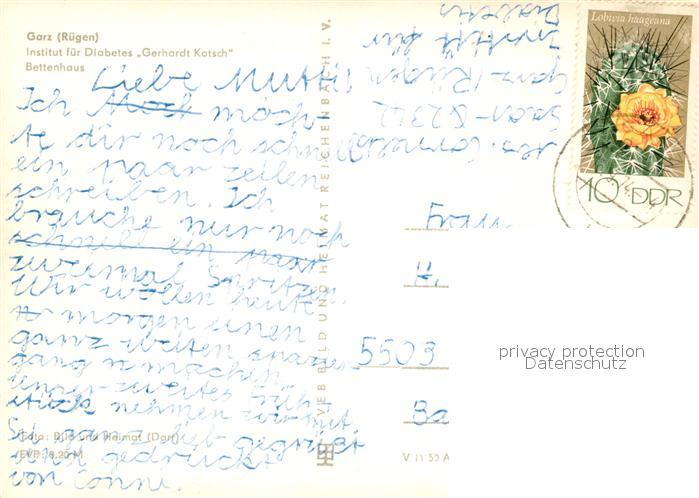 Garz (Rügen)
Institut für Diabetes „Gerhardt Katsch"
Bettenhaus
Liebe Mutti!
Ich möch-
te dir noch schnell
ein paar zeilen
schreiben. Ich
brauche nur noch
schnell ein paar
zweimal Spritzen.
Wir wollen heute
morgen einen
ganz weiten spazier
gang machen
unser zweites früh
stück nehmen wir mit
Sei ganz lieb gegrüßt
und gedrückt
von Conni.
Foto: Bild und Heimat (Darr)
EVP: 0,20 M
VEB BILD UND HEIMAT REICHENBACH I. V.
V 11 50 A
Abs. Cornelia
2342
Garz/Rügen
Institut für
Diabetes
Lobivia haageana
10 DDR
Frau
H.
5503
Ba
privacy protection
Datenschutz